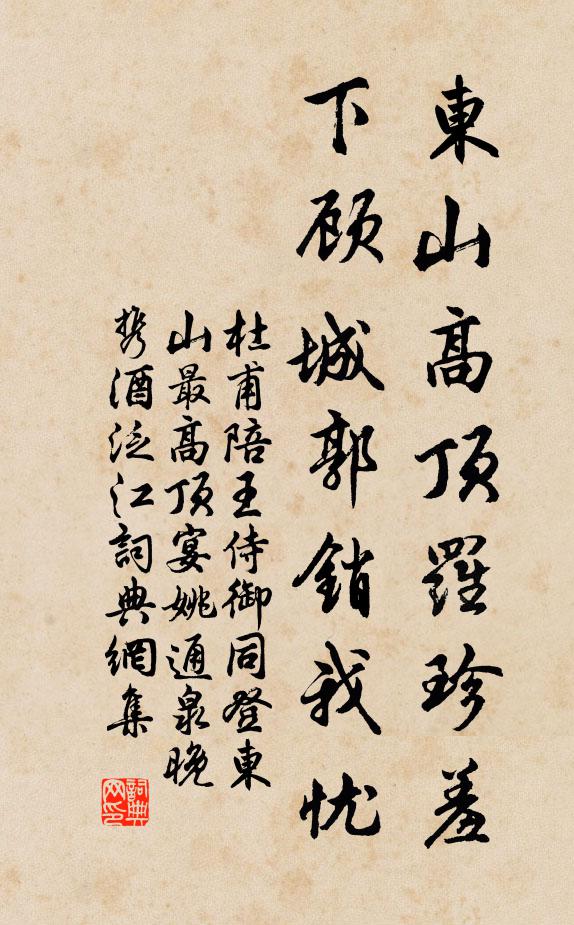 東山高頂羅珍羞
下顾城郭銷我忧
杜甫陪王侍御同登東
山最高頂宴姚通泉晚
携酒泛江詞典網集
詞典
网印